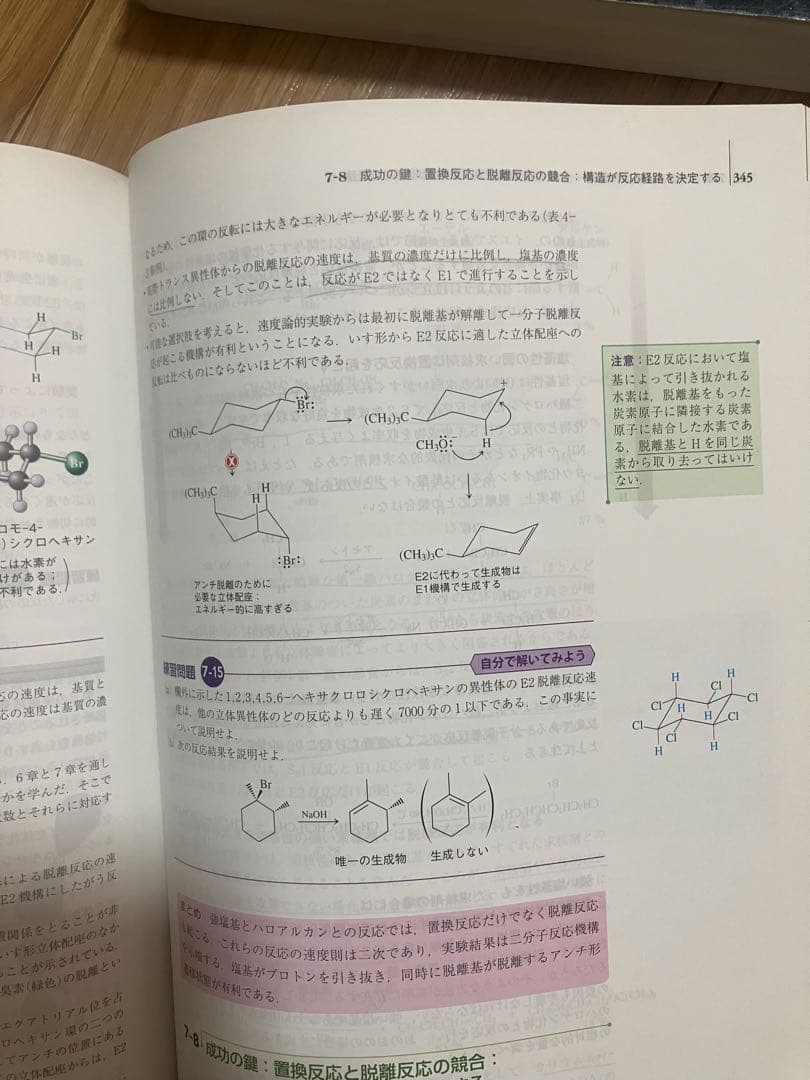 7-8 成功の鍵：置換反応と脱離反応の競合：構造が反応経路を決定する 345
なるため，この環の反転には大きなエネルギーが必要となりとても不利である(表4-
実際トランス異性体からの脱離反応の速度は，基質の濃度だけに比例し，塩基の濃度
には比例しない．そしてこのことは，反応がE2ではなくE1で進行することを示し
ている．
可能な選択肢を考えると，速度論的実験からは最初に脱離基が解離して一分子脱離反
応が起こる機構が有利ということになる．いす形からE2反応に適した立体配座への
反転は比べものにならないほど不利である．
注意：E2反応において塩
基によって引き抜かれる
水素は，脱離基をもった
炭素原子に隣接する炭素
原子に結合した水素であ
る．脱離基とHを同じ炭
素から取り去ってはいけ
ない．
H
Br
H
H
H
Br
コモ-4-
)シクロヘキサン
には水素が
けがある；
不利である．
(CH₃)₃C
Br:
(CH₃)₃C
+
H
CH₃Ö:⁻
X
(CH₃)₃C
H
H
:Br:
アンチ脱離のために
必要な立体配座：
エネルギー的に高すぎる
(CH₃)₃C
E2に代わって生成物は
E1機構で生成する
練習問題 7-15
自分で解いてみよう
(a) 欄外に示した1,2,3,4,5,6-ヘキサクロロシクロヘキサンの異性体のE2脱離反応速
度は，他の立体異性体のどの反応よりも遅く7000分の1以下である．この事実に
ついて説明せよ．
次の反応結果を説明せよ．
H
Cl
H
Cl
Cl
H
H
Cl
Cl
Cl
H
H
Br
NaOH
唯一の生成物
生成しない
まとめ 強塩基とハロアルカンとの反応では，置換反応だけでなく脱離反応
も起こる．これらの反応の速度則は二次であり，実験結果は二分子反応機構
を示唆する．塩基がプロトンを引き抜き，同時に脱離基が脱離するアンチ形
遷移状態が有利である．
7-8 成功の鍵：置換反応と脱離反応の競合：
応の速度は，基質と
応の速度は基質の濃
，6章と7章を通し
かを学んだ．そこで
数とそれらに対応す
による脱離反応の速
E2機構にしたがう反
置関係をとることが非
いす形立体配座のなか
ることが示されている．
臭素(緑色)の脱離とい
エクアトリアル位を占
ロヘキサン環の二つの
てアンチの位置にある
の立体配座からは，E2